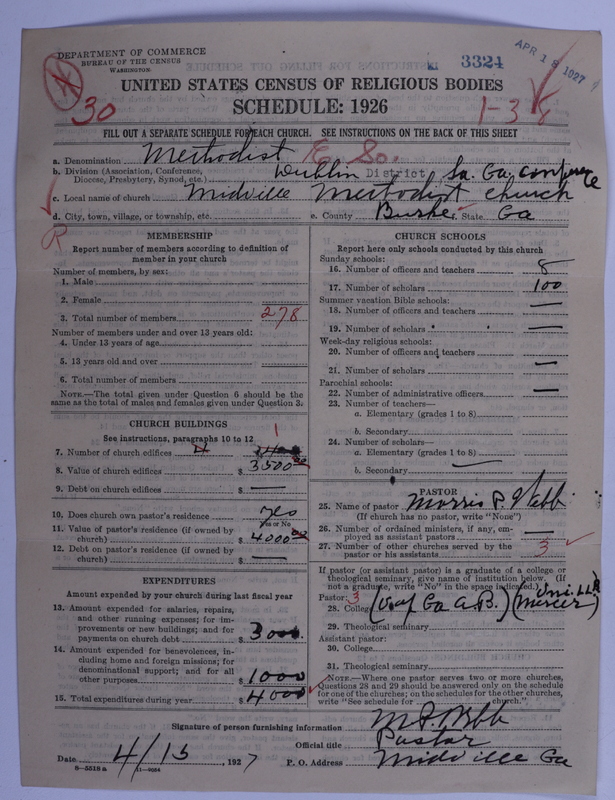 DEPARTMENT OF COMMERCE
BUREAU OF THE CENSUS
WASHINGTON
3324
APR 18 1927
30
1-3
UNITED STATES CENSUS OF RELIGIOUS BODIES
SCHEDULE: 1926
FILL OUT A SEPARATE SCHEDULE FOR EACH CHURCH. SEE INSTRUCTIONS ON THE BACK OF THIS SHEET
a. Denomination Methodist E. So.
b. Division (Association, Conference, Diocese, Presbytery, Synod, etc.) Dublin District So. Ga. conference
c. Local name of church Midville Methodist church
d. City, town, village, or township, etc. e. County Burke f. State Ga
R
MEMBERSHIP
Report number of members according to definition of
member in your church
Number of members, by sex:
1. Male
2. Female
3. Total number of members 278
Number of members under and over 13 years old:
4. Under 13 years of age
5. 13 years old and over
6. Total number of members
NOTE.—The total given under Question 6 should be
same as the total of males and females given under Question 3.
CHURCH BUILDINGS
See instructions, paragraphs 10 to 12
7. Number of church edifices 1
8. Value of church edifices $ 3500 00
9. Debt on church edifices $ —
10. Does church own pastor's residence yes
Yes or No
11. Value of pastor's residence (if owned by
church) $ 4000 00
12. Debt on pastor's residence (if owned by
church) $ —
EXPENDITURES
Amount expended by your church during last fiscal year
13. Amount expended for salaries, repairs,
and other running expenses; for im-
provements or new buildings; and for
payments on church debt $ 3000
14. Amount expended for benevolences, in-
cluding home and foreign missions; for
denominational support; and for all
other purposes $ 1000
15. Total expenditures during year $ 4000
CHURCH SCHOOLS
Report here only schools conducted by this church
Sunday schools:
16. Number of officers and teachers 8
17. Number of scholars 100
Summer vacation Bible schools:
18. Number of officers and teachers —
19. Number of scholars —
Week-day religious schools:
20. Number of officers and teachers
21. Number of scholars —
Parochial schools:
22. Number of administrative officers —
23. Number of teachers—
a. Elementary (grades 1 to 8)
b. Secondary
24. Number of scholars—
a. Elementary (grades 1 to 8)
b. Secondary
PASTOR
25. Name of pastor Morris P. Webb
(If church has no pastor, write "None")
26. Number of ordained ministers, if any, em-
ployed as assistant pastors —
27. Number of other churches served by the
pastor or his assistants 3
If pastor (or assistant pastor) is a graduate of a college or
theological seminary, give name of institution below,
not a graduate, write "No" in the space indicated.)
Pastor: 3
28. College (U of Ga A.B.) (Mercer Uni. LLB)
29. Theological seminary
Assistant pastor:
30. College
31. Theological seminary
NOTE.—Where one pastor serves two or more churches,
Questions 28 and 29 should be answered only on the schedule
for one of the churches; on the schedules for the other churches,
write "See schedule for church."
Signature of person furnishing information M P Webb
Official title Pastor
Date 4/15, 1927 P. O. Address Midville Ga
8—5518 a 11—9024